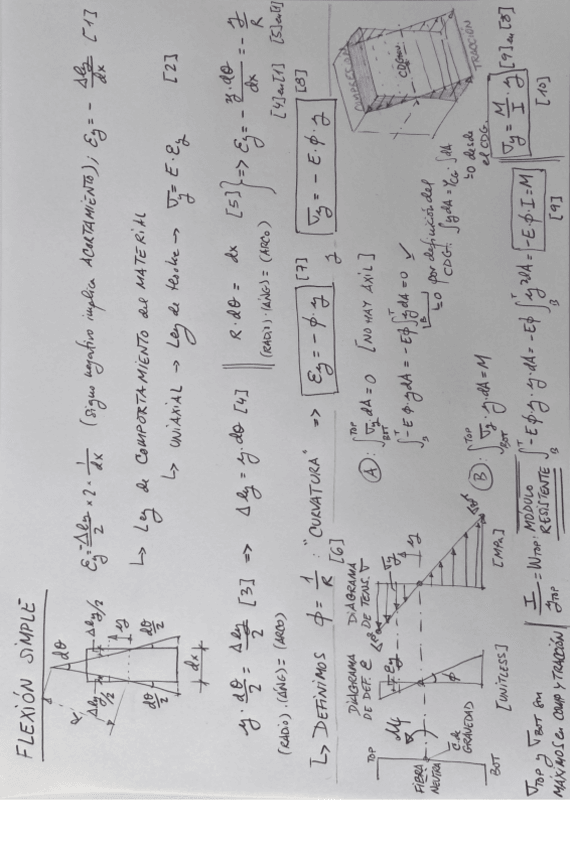 FLEXIÓN SIMPLE
dθ
R
Δly/2
Δly/2
y
dθ/2
dθ/2
dx
εy = -Δly/2 × 2 × 1/dx (signo negativo implica ACORTAMIENTO); εy = - Δly/dx [1]
↳ Ley de COMPORTAMIENTO del MATERIAL
↳ UNIAXIAL → Ley de Hooke → σy = E · εy [2]
y · dθ/2 = Δly/2 [3] => Δly = y · dθ [4] || R · dθ = dx [5] } => εy = - y · dθ/dx = - y/R
(RADIO) · (ÁNG) = (ARCO)
(RADIO) · (ÁNG) = (ARCO)
[4] en [1] [5] en [1]
↳ DEFINIMOS ϕ = 1/R : "CURVATURA" => εy = - ϕ · y [7] σy = - E · ϕ · y [8]
[6]
DIAGRAMA DE DEF. ε
DIAGRAMA DE TENS. σ
TOP
Mf
εy
σy
y
FIBRA NEUTRA
C. de GRAVEDAD
ϕ
BOT
[UNITLESS]
[MPa]
A: ∫BOT^TOP σy dA = 0 [NO HAY AXIL]
∫B^T -E ϕ · y dA = -E ϕ ∫B^T y dA = 0 ✓
↳ 0 por definición del CDG. ∫ y dA = YCG · ∫ dA
↳ 0 desde el CDG.
COMPRESIÓN
CDG
TRACCIÓN
B: ∫BOT^TOP σy · y · dA = M
∫B^T -E ϕ · y · y · dA = -E ϕ ∫B^T y² dA = -E ϕ · I = M
[9]
σy = M/I · y [9] en [8]
[10]
σTOP y σBOT son
MÁXIMOS en COMP. Y TRACCIÓN
I/yTOP = WTOP: MÓDULO RESISTENTE